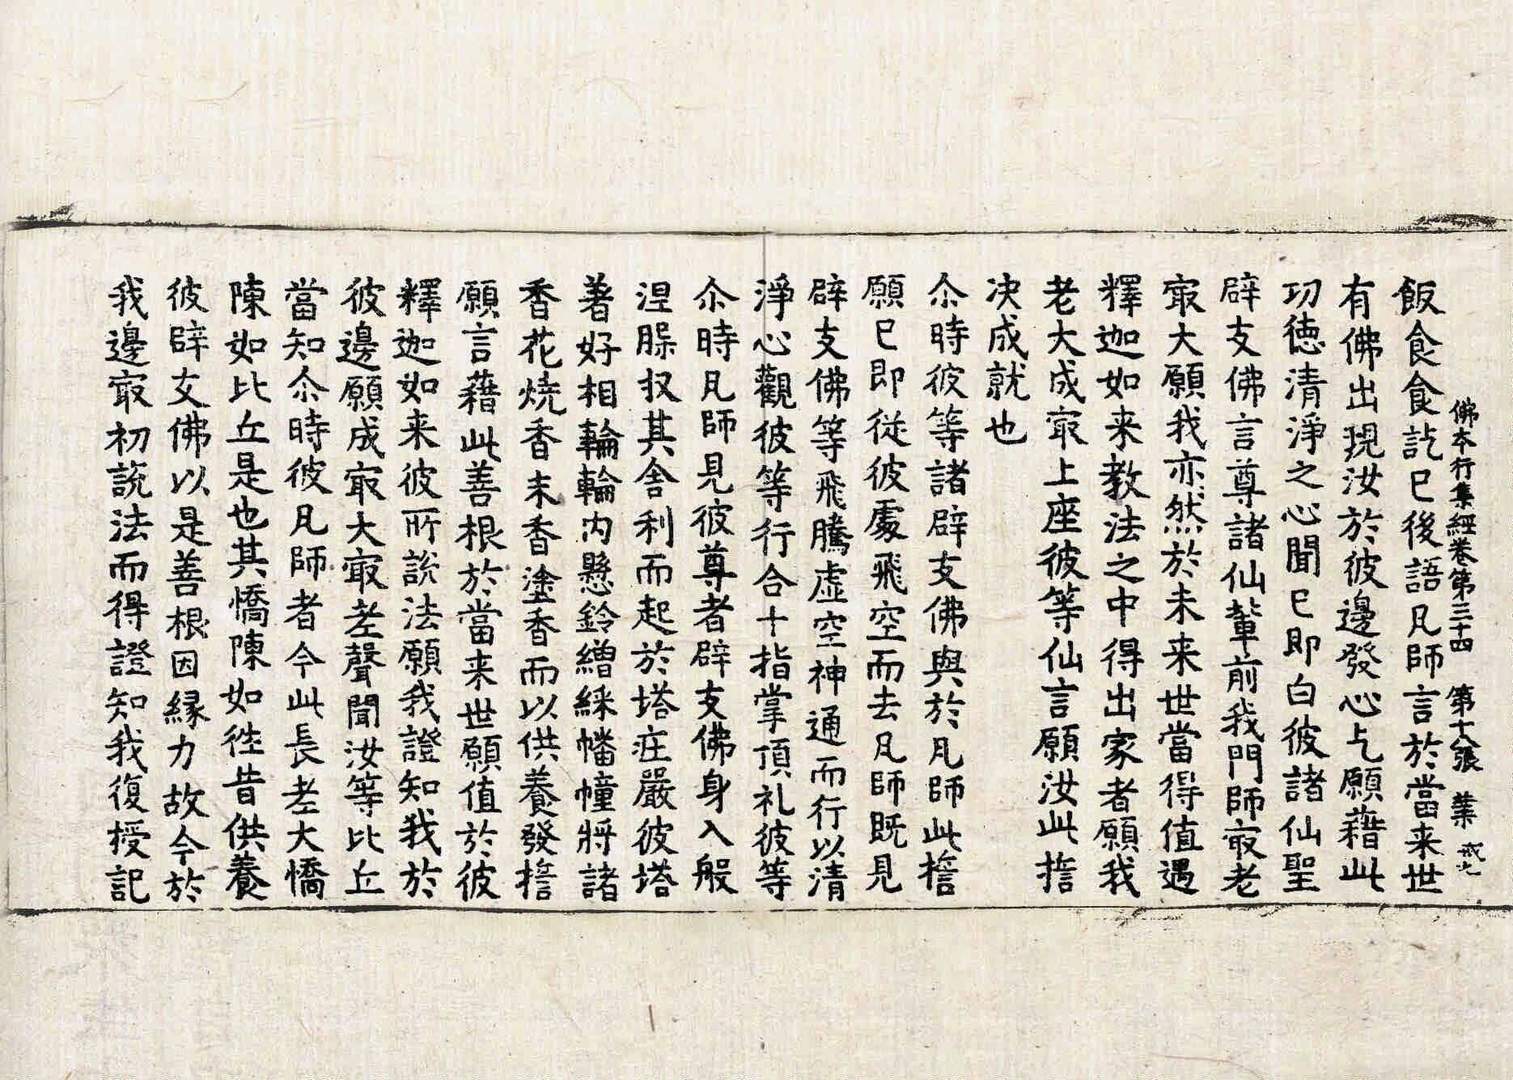 佛本行集經卷第三十四　第十八張　業
飯食食訖已後語凡師言於當来世
有佛出現汝於彼邊發心乞願藉此
功徳清淨之心聞已即白彼諸仙聖
辟支佛言尊諸仙輩前我門師㝡老
㝡大願我亦然於未来世當得值遇
釋迦如来教法之中得出家者願我
老大成㝡上座彼等仙言願汝此擔
决成就也
尒時彼等諸辟支佛與於凡師此擔
願已即從彼處飛空而去凡師既見
辟支佛等飛騰虛空神通而行以清
淨心觀彼等行合十指掌頂礼彼等
尒時凡師見彼尊者辟支佛身入般
涅槃収其舎利而起於塔庄嚴彼塔
著好相輪輪内懸鈴繒綵幡幢將諸
香花燒香末香塗香而以供養發擔
願言藉此善根於當来世願值於彼
釋迦如来彼所說法願我證知我於
彼邊願成㝡大㝡老聲聞汝等比丘
當知尒時彼凡師者今此長老大憍
陳如比丘是也其憍陳如徃昔供養
彼辟支佛以是善根因縁力故今於
我邊㝡初說法而得證知我復授記